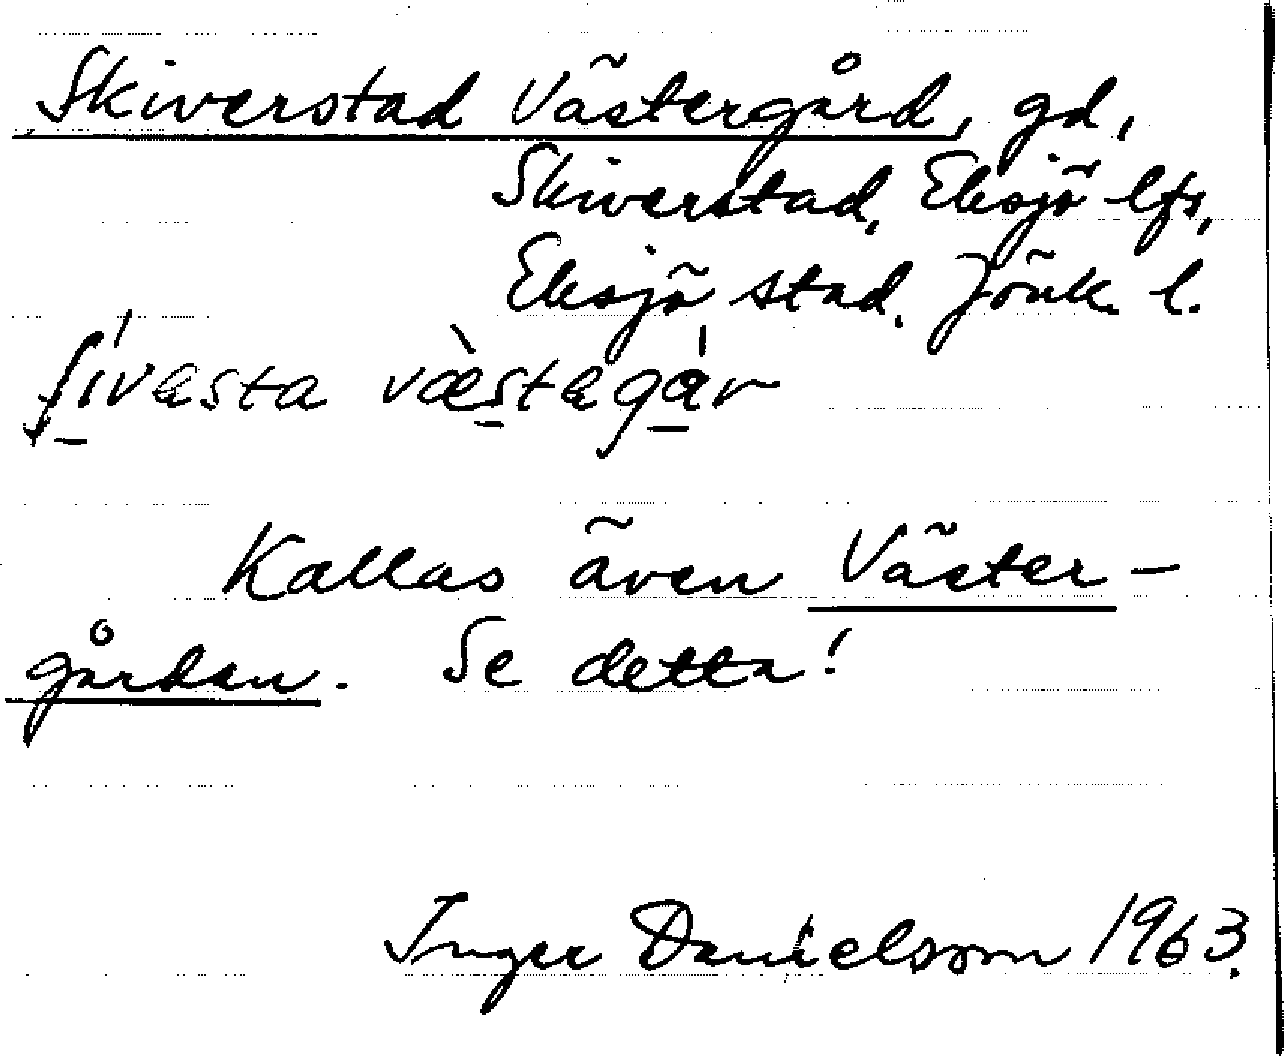 Skiverstad Västergård, gd,
Skiverstad, Eksjö lfs,
Eksjö stad. Jönk. l.
ʃívæsta væ̀stægár
Kallas även Väster-
gården. Se detta!
Inger Danielsson 1963.